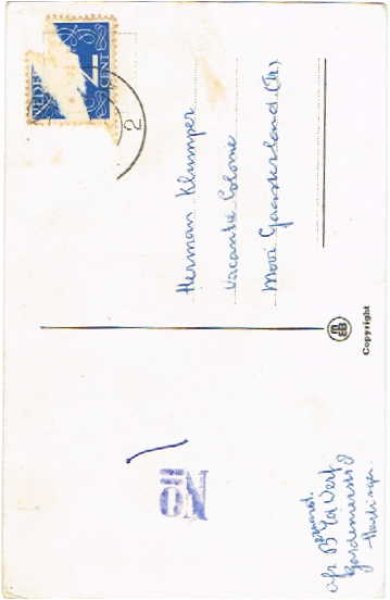 NEDER
2
CENT
2
Herman Klumper
Vacantie Colonie
Mooi Gaasterland (Fr.)
EB
Copyright
No
afz B v d Werf
Harlingen.